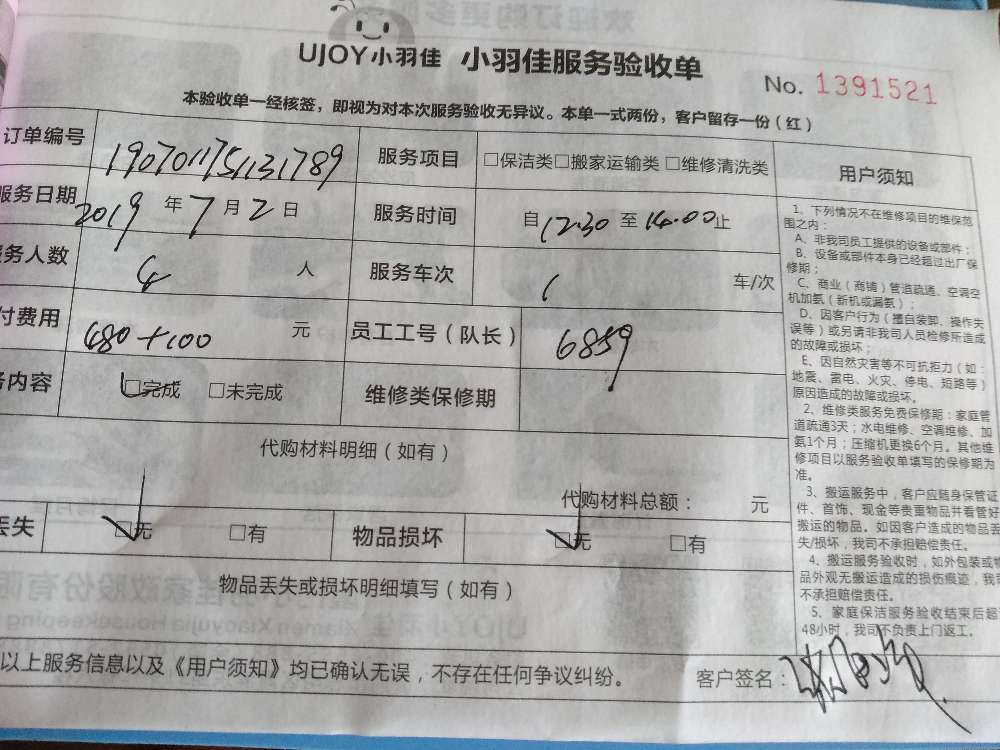 UJOY小羽佳 小羽佳服务验收单
No. 1391521
本验收单一经核签，即视为对本次服务验收无异议。本单一式两份，客户留存一份（红）
订单编号 190701175131789 服务项目 □保洁类□搬家运输类 □维修清洗类
服务日期 2019 年 7 月 2 日 服务时间 自 12.30 至 14.00 止
务人数 4 人 服务车次 1 车/次
付费用 680+100 元 员工工号（队长） 6859
务内容 □完成 □未完成 维修类保修期
代购材料明细（如有）
代购材料总额： 元
丢失 □无 □有 物品损坏 □无 □有
物品丢失或损坏明细填写（如有）
以上服务信息以及《用户须知》均已确认无误，不存在任何争议纠纷。 客户签名：
用户须知
1、下列情况不在维修项目的维保范
围之内：
A、非我司员工提供的设备或部件；
B、设备或部件本身已经超过出厂保
修期；
C、商业（商铺）管道疏通、空调空
机加氨（新机或漏氨）；
D、因客户行为（擅自装卸、操作失
误等）或另请非我司人员检修所造成
的故障或损坏；
E、因自然灾害等不可抗拒力（如：
地震、雷电、火灾、停电、短路等）
原因造成的故障或损坏。
2、维修类服务免费保修期：家庭管
道疏通3天；水电维修、空调维修、加
氨1个月；压缩机更换6个月。其他维
修项目以服务验收单填写的保修期为
准。
3、搬运服务中，客户应随身保管证
件、首饰、现金等贵重物品并看管好
搬运的物品。如因客户造成的物品丢
失/损坏，我司不承担赔偿责任。
4、搬运服务验收时，如外包装或物
品外观无搬运造成的损伤痕迹，我司
不承担赔偿责任。
5、家庭保洁服务验收结束后超
48小时，我司不负责上门返工。